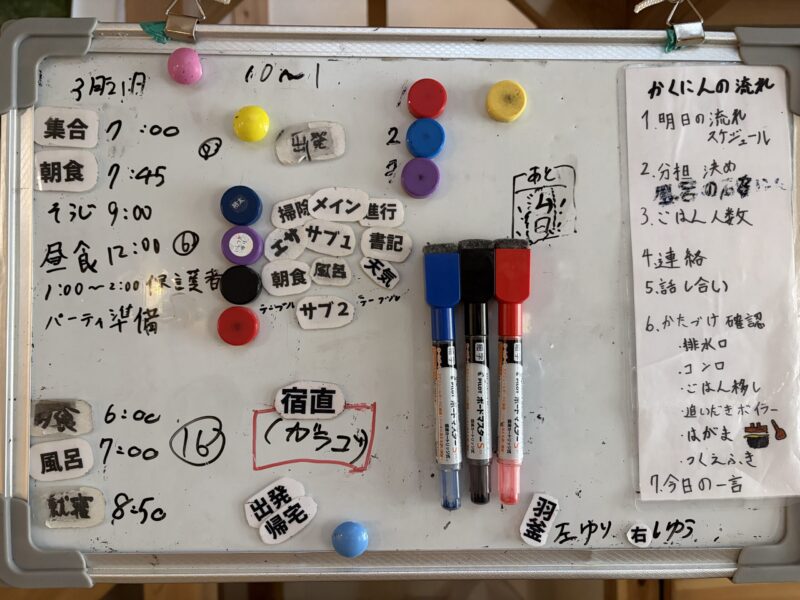 3月21日
10〜1
集合 7:00
朝食 7:45
そうじ 9:00
昼食 12:00 ⑥
1:00〜2:00 保護者
パーティ準備
夕食 6:00
風呂 7:00
⑯
就寝 8:50
出発
2
3
掃除 メイン 進行
エサ サブ1 書記
朝食 風呂 天気
テーブル サブ2 テーブル
あと
4日
宿直
出発
帰宅
羽釜 左ゆり 右しゆう
PILOT ボードマスターS
PILOT ボードマスターS
PILOT ボードマスターS
かくにんの流れ
1.明日の流れ
スケジュール
2.分担 決め
3.ごはん 人数
4.連絡
5.話し合い
6.かたづけ 確認
・排水口
・コンロ
・ごはん移し
・追いだきボイラー
・はがま
・つくえふき
7.今日の一言